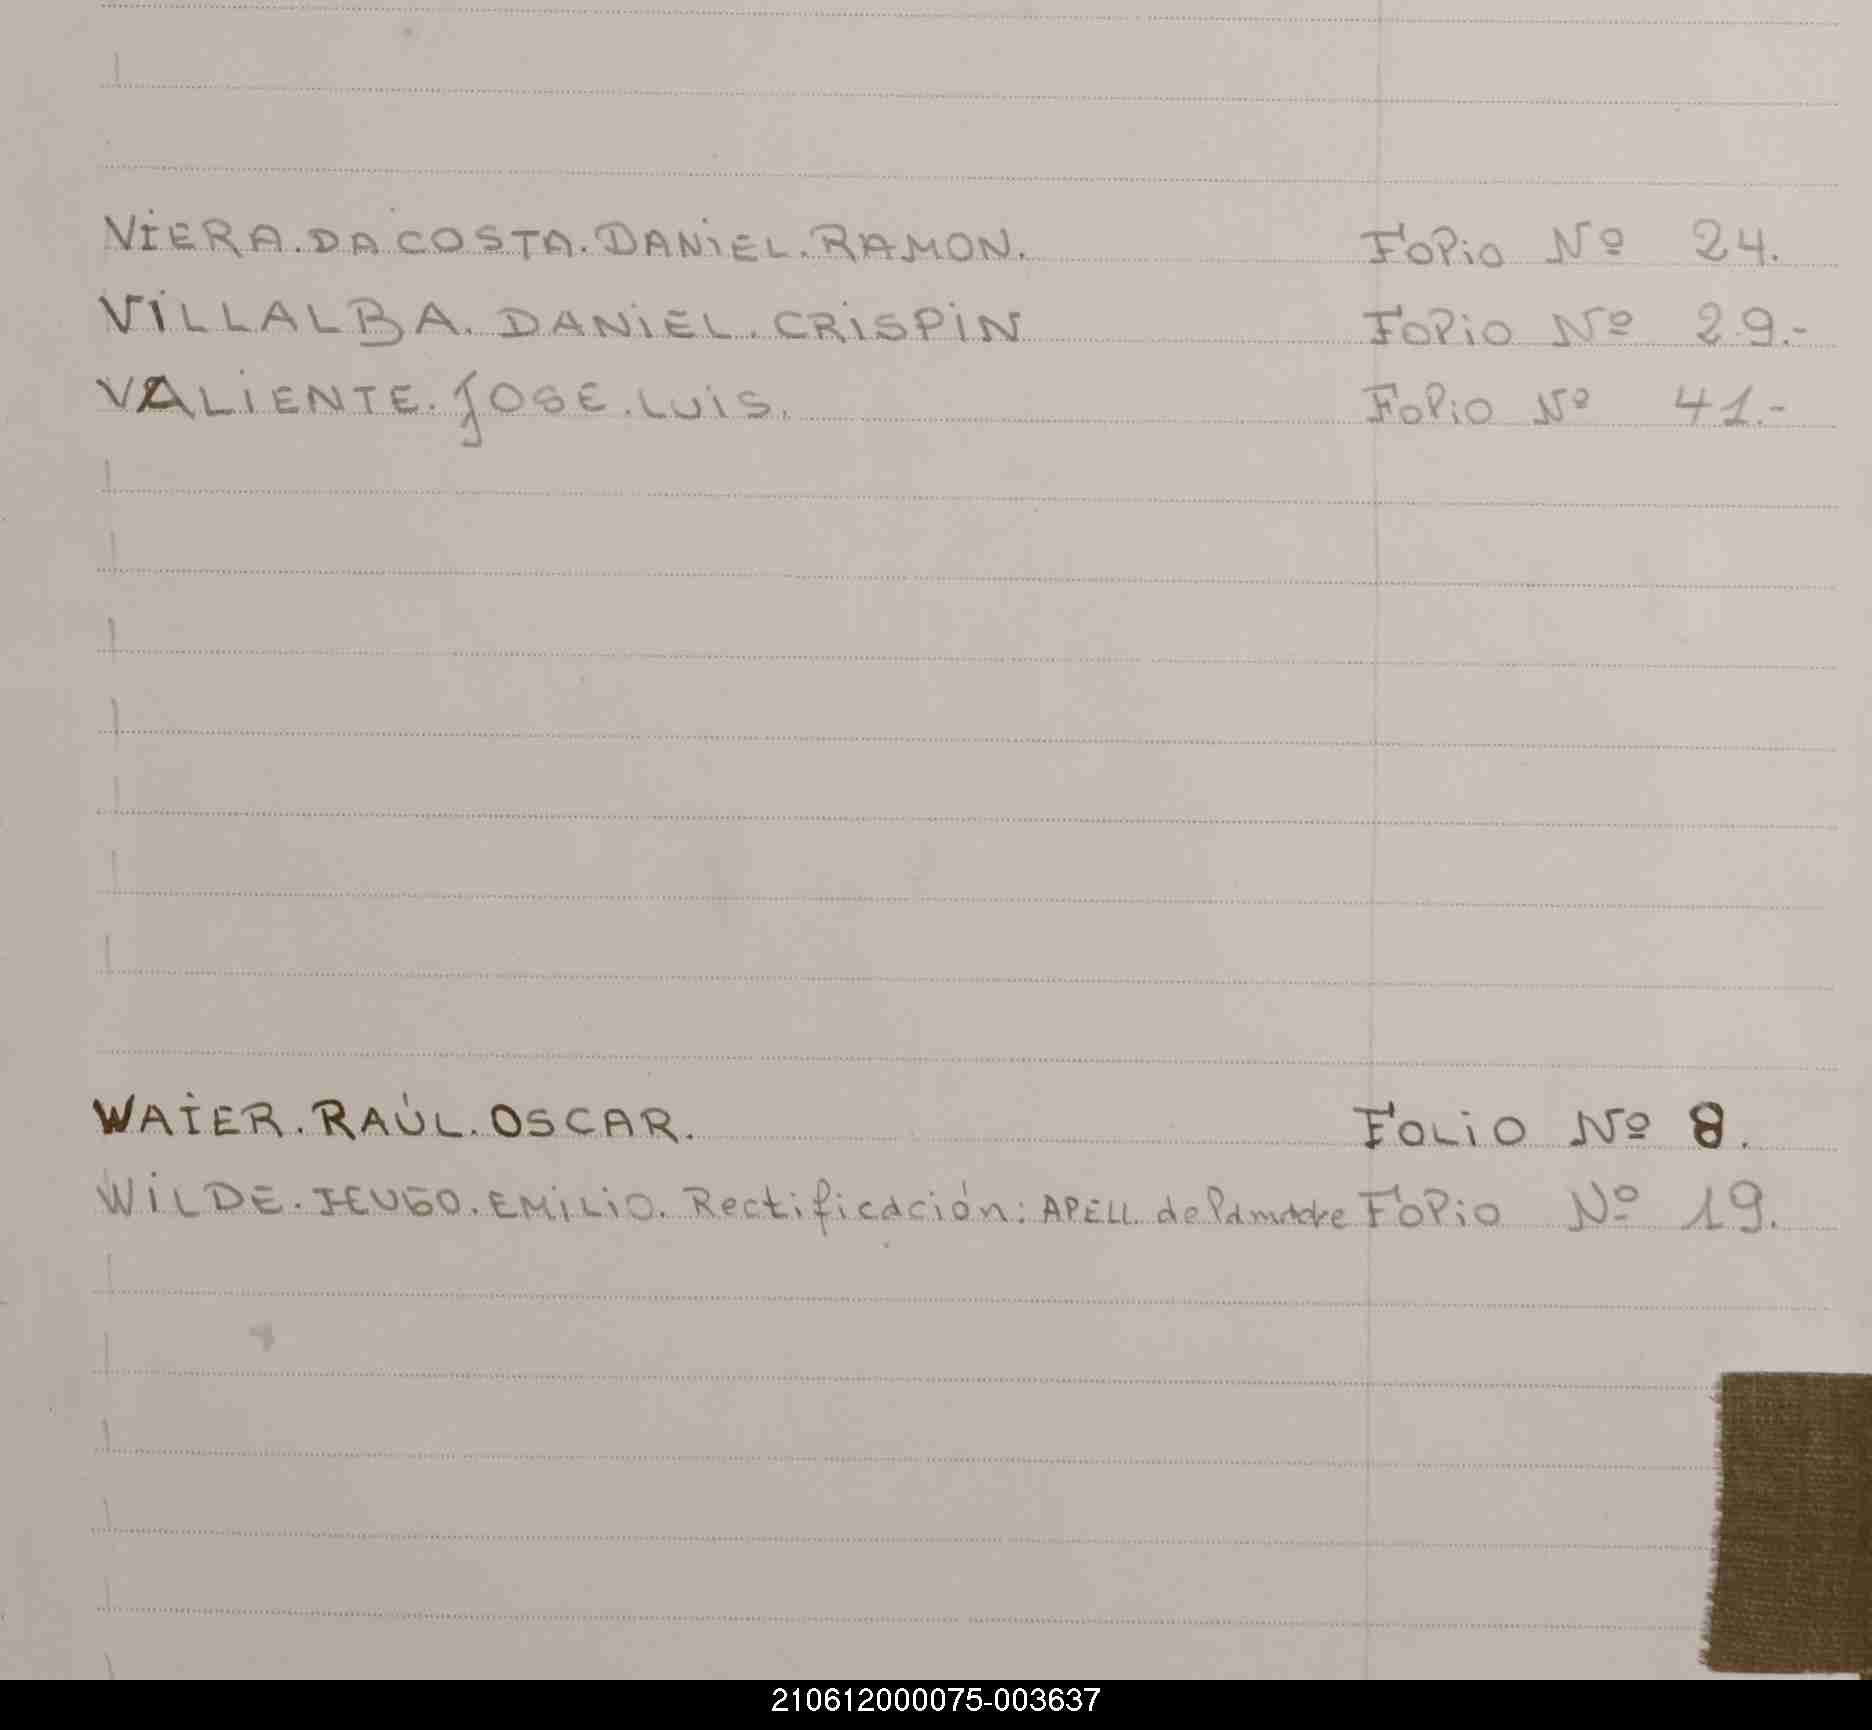 VIERA.DA COSTA.DANIEL.RAMON. FOLIO Nº 24.
VILLALBA. DANIEL.CRISPIN FOLIO Nº 29.-
VALIENTE.JOSE.LUIS. FOLIO Nº 41.-
WAIER.RAÚL.OSCAR. FOLIO Nº 8.
WILDE.HUGO.EMILIO. Rectificación: APELL. de FOLIO Nº 19.
210612000075-003637